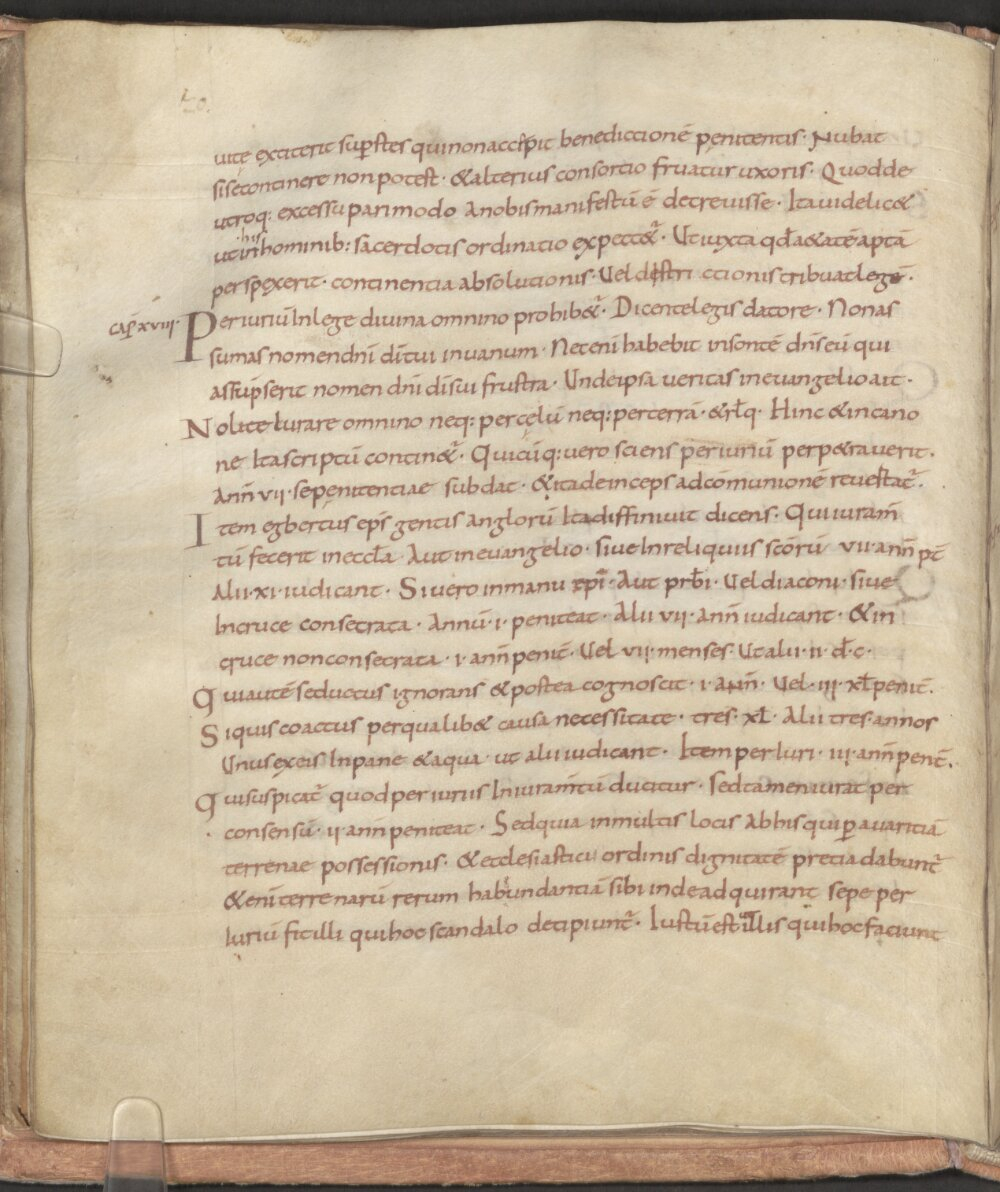 20.
uitę extiterit sup̄stes qui non accep̄it benedictionē pęnitentis · Nubat
si se continere non potest · & alterius consortio fruatur uxoris · Quod de
utroq: excessu pari modo a nobis manifestū ē decreuisse · Ita uidelic&
his
ut in hominib: sacerdotis ordinatio expect&ur · Ut iuxta qd̄ aetatē aptā
perspexerit · continentia absolutionis · Uel districtionis tribuat legē ·
Cap̄ xviii · Periuriū In lege diuina omnino prohib&ur · Dicente legis datore · Non as
sumas nomen dn̄i dī tui in uanum · Nec enī habebit insontē dn̄s eū qui
assūpserit nomen dn̄i dī sui frustra · Unde ipsa ueritas in euangelio ait ·
Nolite Iurare omnino neq: per cęlū neq: per terrā · & rl̄q · Hinc & in cano
ne Ita scriptū contin&ur · Quicūq: uero sciens periuriū perp&rauerit ·
Ann̄ vii · se penitentiae subdat · & ita deinceps ad cōmunionē reuertatur ·
Item egbertus ep̄s gentis anglorū Ita diffiniuit dicens · Qui iuram̄
tū fecerit in eccl̄a · Aut in euangelio · siue In reliquiis sc̄orū vii · ann̄ pt̄
Alii · xi · iudicant · Si uero in manu epī · Aut prb̄i · Uel diaconi · siue
In cruce consecrata · Annū · i · peniteat · Alii vii · ann̄ iudicant · & in
cruce non consecrata · i · ann̄ penit̄ · Uel vii · menses · Ut alii · ii · d̄ · c ·
Qui autē seductus ignorans & postea cognoscit · i · ann̄ · Uel · iii · xl̄ penit̄ ·
Si quis coactus per qualib& causa necessitate · tres · xl̄ · Alii tres · annos
Unus ex eis In pane & aqua · ut alii iudicant · Item periuri · iii · ann̄ penit̄ ·
Qui suspicatur quod periurus In iuram̄tū ducitur · sed tamen iurat per
consensū · ii ann̄ peniteat · Sed quia in multis locis ab his qui p̱ auaritiā
terrenae possessionis · & ecclesiastici ordinis dignitatē pretia dabuntur
& enī terrenarū rerum habundantiā sibi inde adquirant sepe per
Iuriū fit illi qui hoc scandalo decipiuntur · Iustū est ut illis qui hoc faciunt